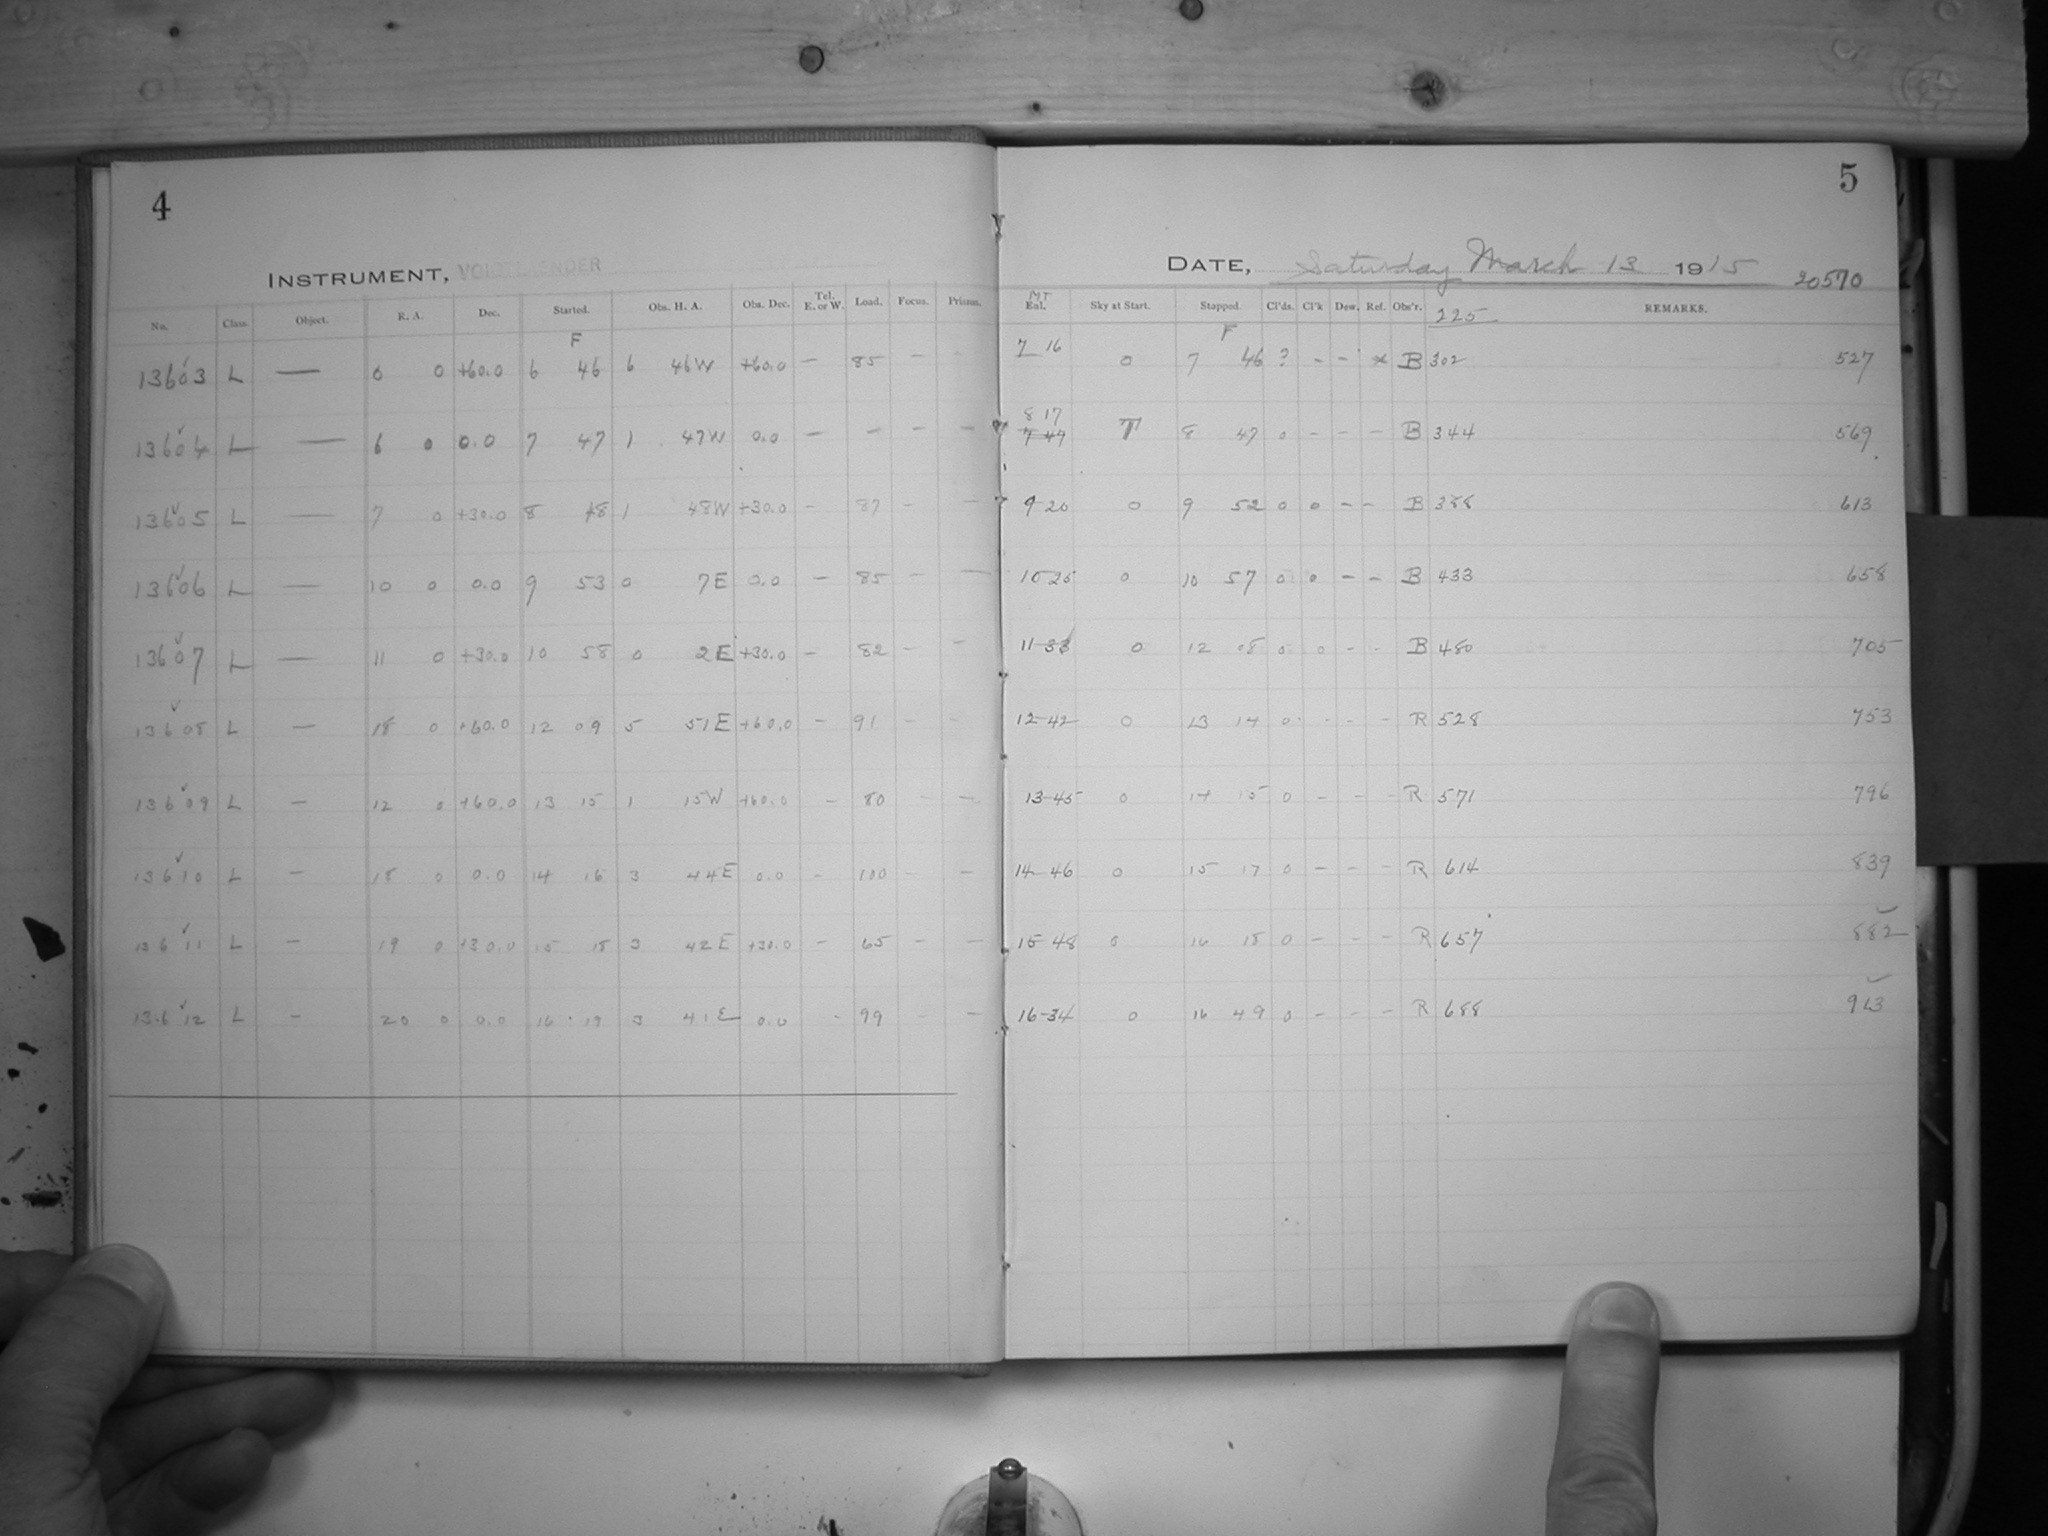 4
INSTRUMENT, VOIGTLENDER
No. Class. Object. R. A. Dec. Started. Obs. H. A. Obs. Dec. Tel. E. or W. Load. Focus. Prisms.
F
13603 L — 0 0 +60.0 6 46 6 46W +60.0 — 85 -
13604 L — 6 0 0.0 7 47 1 47W 0.0 — - - -
13605 L — 7 0 +30.0 8 48 1 48W +30.0 - 87 - -
13606 L — 10 0 0.0 9 53 0 7E 0.0 - 85 - —
13607 L — 11 0 +30.0 10 58 0 2E +30.0 - 82 - -
13608 L — 18 0 +60.0 12 09 5 51E +60.0 - 91 - -
13609 L — 12 0 +60.0 13 15 1 15W +60.0 - 80 - -
13610 L — 18 0 0.0 14 16 3 44E 0.0 - 100 - -
13611 L — 19 0 +30.0 15 18 3 42E +30.0 - 65 - -
13612 L - 20 0 0.0 16 19 3 41E 0.0 - 99 - -
5
DATE, Saturday March 13 1915 20570
MT
Enl. Sky at Start. Stopped. Cl'ds. Cl'k Dew. Ref. Obs'r. 225 REMARKS.
F
7 16 0 7 46 ? - - x B 302 527
8 17
7 47 T 8 47 0 - - - B 344 569
9 20 0 9 52 0 0 - - B 388 613
10 25 0 10 57 0 0 - - B 433 658
11-33 0 12 08 0 0 - - B 480 705
12-42 0 13 14 0 - - - R 528 753
13-45 0 14 15 0 - - - R 571 796
14-46 0 15 17 0 - - - R 614 839
15-48 0 16 18 0 - - - R 657 882
16-34 0 16 49 0 - - - R 688 913